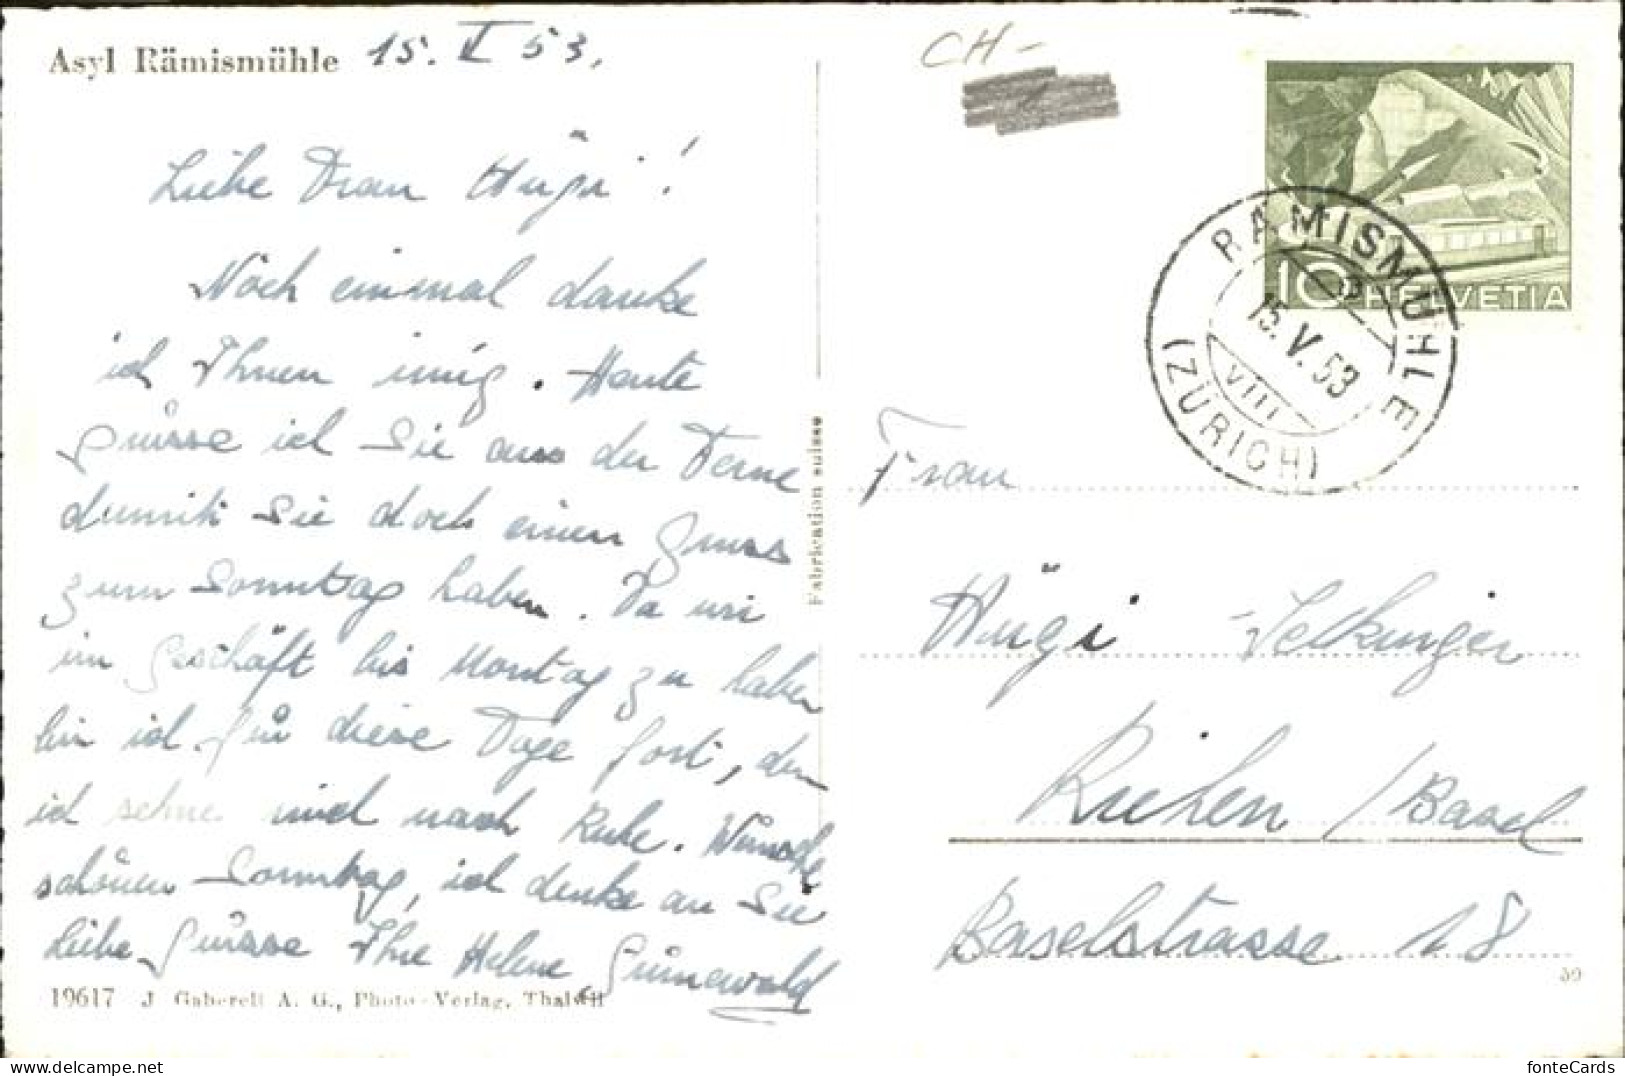 Asyl Rämismühle 15. V 53.
Liebe Frau Hügi!
Noch einmal danke
ich Ihnen innig. Heute
grüsse ich Sie aus der Ferne
damit Sie doch einen Gruss
zum Sonntag haben. Da wir
im Geschäft bis Montag zu haben
bin ich für diese Tage fort, denn
ich sehne mich nach Ruhe. Wünsche
schönen Sonntag, ich denke an Sie
Liebe Grüsse Ihre Helene Grünewald
19617 J. Gaberell A. G., Photo-Verlag, Thalwil
Fabrication suisse
CH-
10 HELVETIA
RÄMISMÜHLE
15. V. 53
VIII
(ZÜRICH)
Frau
Hügi
Riehen / Basel
Baselstrasse 18
59
fonteCards